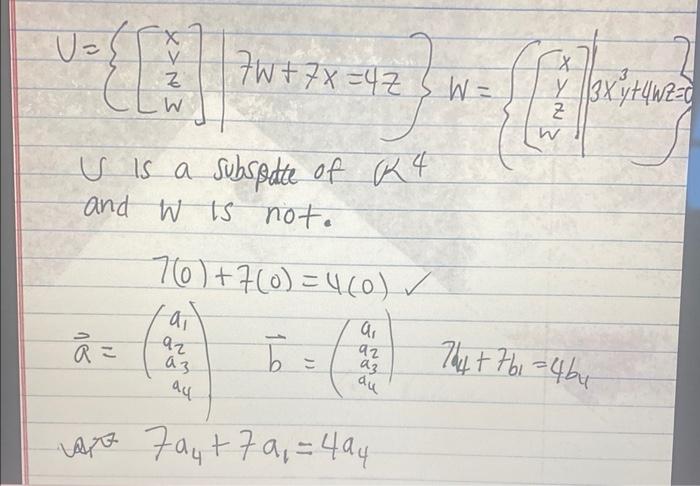 U = { [x y z w] | 7w + 7x = 4z } W = { [x y z w] | 3x³y + 4wz = 0 }
U is a subspace of R⁴
and W is not.
7(0) + 7(0) = 4(0) ✓
a⃗ = (a₁ a₂ a₃ a₄) b⃗ = (a₁ a₂ a₃ a₄) 7b₄ + 7b₁ = 4b₄
7a₄ + 7a₁ = 4a₄